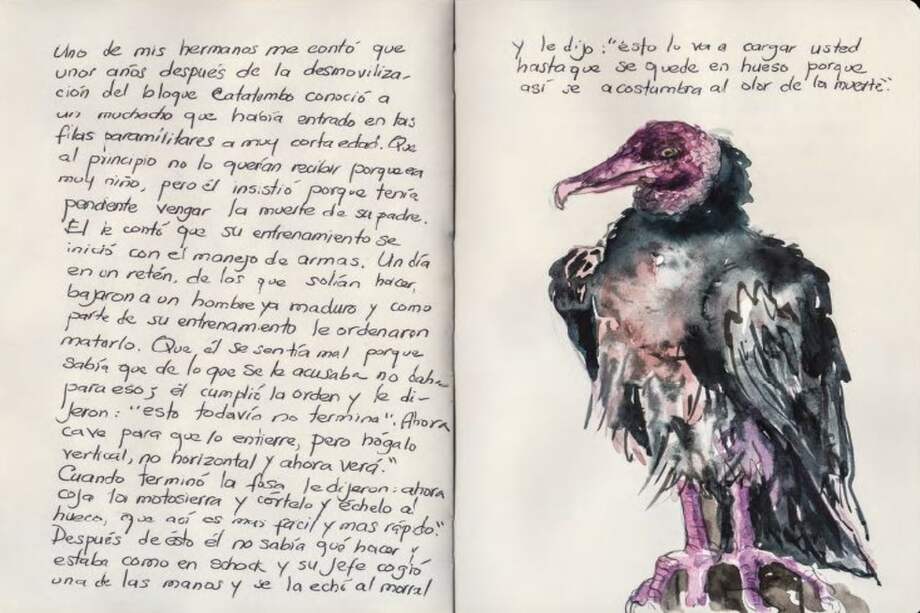 Uno de mis hermanos me contó que
unor años después de la desmoviliza-
ción del bloque Catatumbo conoció a
un muchacho que había entrado en las
filas paramilitares a muy corta edad. Que
al principio no lo querían recibir porque era
muy niño, pero él insistió porque tenía
pendiente vengar la muerte de su padre.
Él le contó que su entrenamiento se
inició con el manejo de armas. Un día
en un retén, de los que solían hacer,
bajaron a un hombre ya maduro y como
parte de su entrenamiento le ordenaron
matarlo. Que él se sentía mal porque
sabía que de lo que se le acusaba no daba
para eso; él cumplió la orden y le di-
jeron: "esto todavía no termina". Ahora
cave para que lo entierre, pero hágalo
vertical, no horizontal y ahora verá."
Cuando terminó la fosa le dijeron: ahora
coja la motosierra y córtelo y échelo al
hueco, que así es mas fácil y mas rápido."
Después de ésto él no sabía qué hacer y
estaba como en schock y su jefe cogió
una de las manos y se la echó al morral
y le dijo: "ésto lo va a cargar usted
hasta que se quede en hueso porque
así se acostumbra al olor de la muerte".